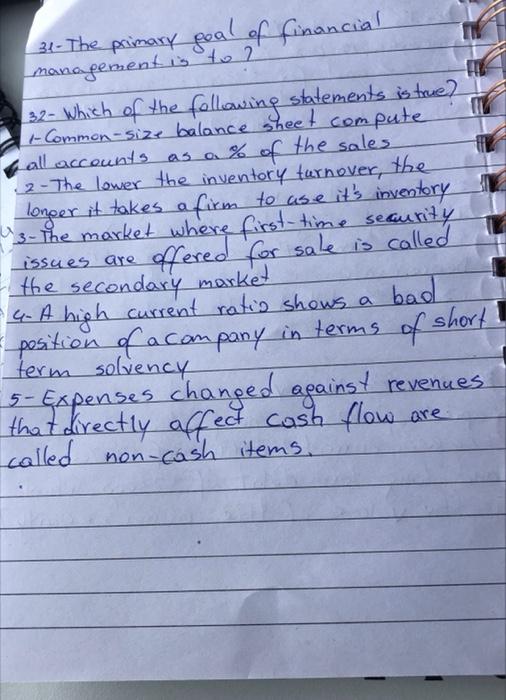 31- The primary goal of financial
management is to?
32- Which of the following statements is true?
1- Common-size balance sheet compute
all accounts as a % of the sales
2- The lower the inventory turnover, the
longer it takes a firm to use it's inventory
3- The market where first-time security
issues are offered for sale is called
the secondary market
4- A high current ratio shows a bad
position of a company in terms of short
term solvency
5- Expenses changed against revenues
that directly affect cash flow are
called non-cash items.